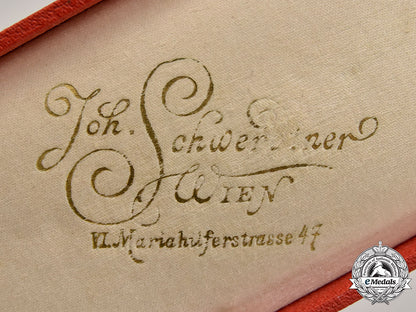 Joh. Schwerdtner
WIEN
VI. Mariahilferstrasse 47
eMedals